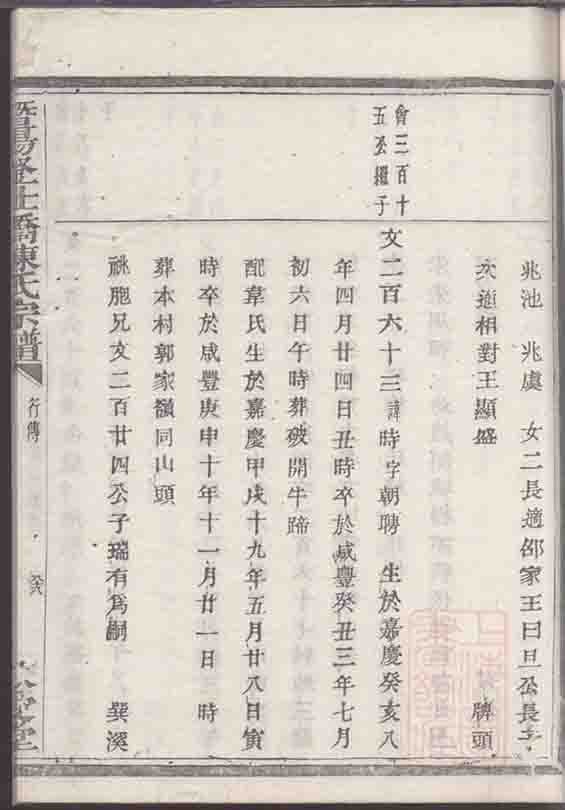 兆池 兆虞 女二長適邵家王曰旦公長子
次適相對王顯盛 牌頭
會三百十
五公繼子
文二百六十三諱時字朝聘 生於嘉慶癸亥八
年四月廿四日丑時卒於咸豐癸丑三年七月
初六日午時葬破開牛蹄
配韋氏生於嘉慶甲戌十九年五月廿八日寅
時卒於咸豐庚申十年十一月廿一日 時
葬本村郭家嶺同山頭
祧胞兄文二百廿四公子瑞有為嗣 巽溪
暨陽 橋陳氏宗譜
行傳